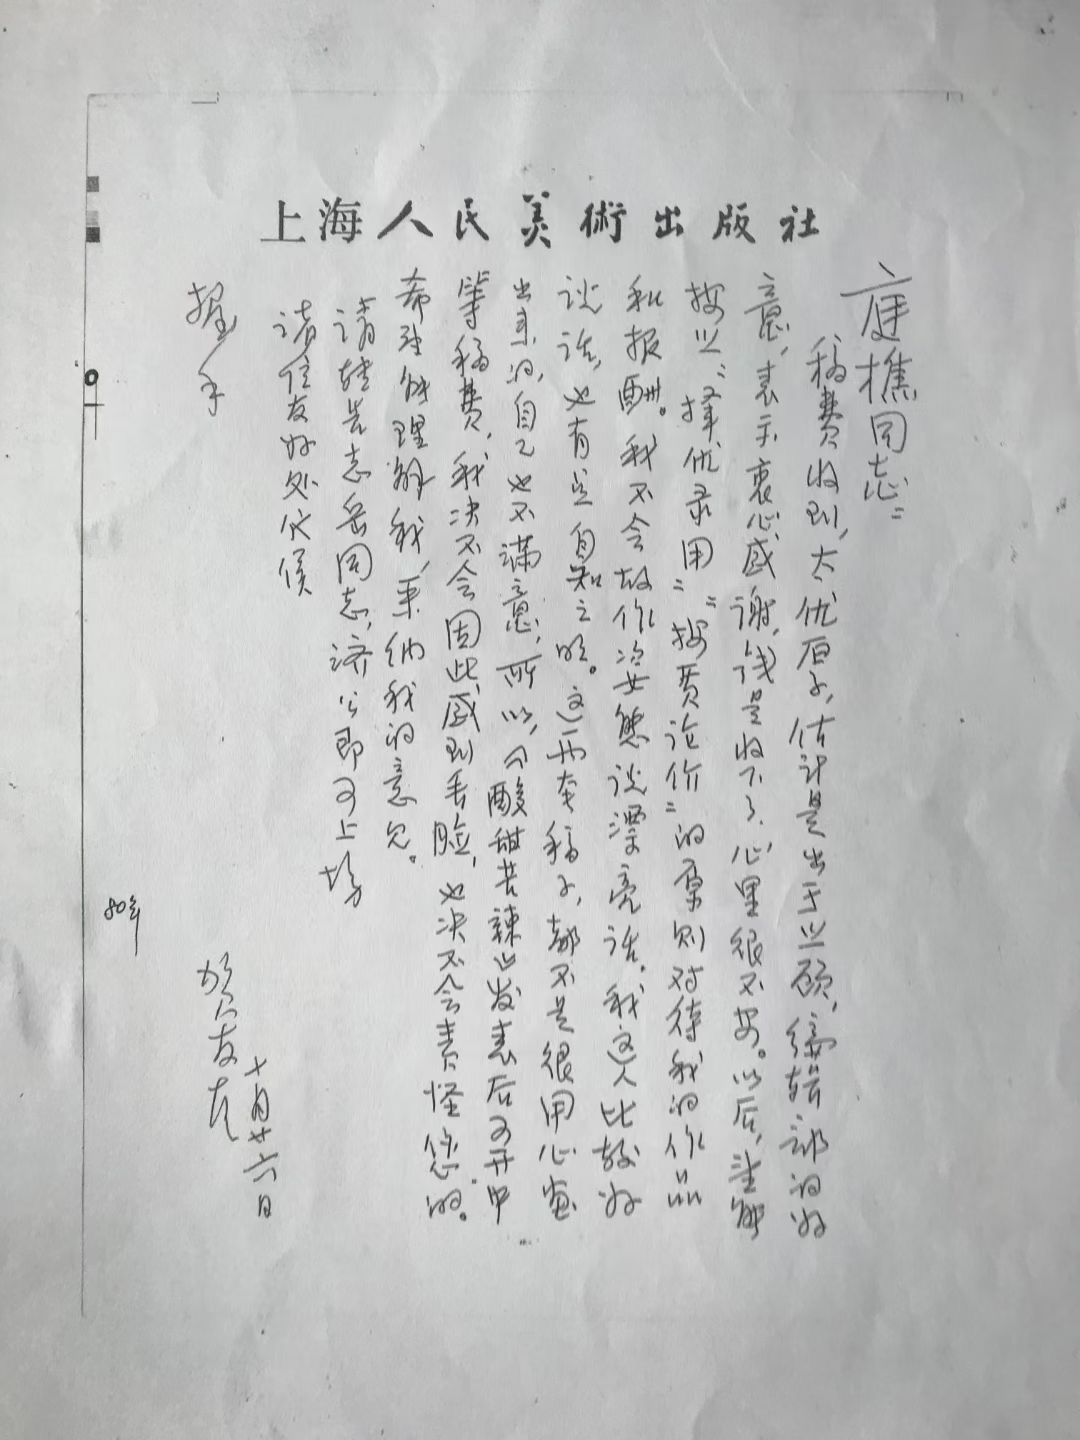 上海人民美術出版社
庭樵同志：
稿费收到，太优厚了，估计是出于照顾，编辑部的好
意，表示衷心感谢，钱是收下了，心里很不安。以后，望能
按照“择优录用”“按质论价”的原则对待我的作品
和报酬。我不会故作姿态说漂亮话，我这人比较好
说话，也有点自知之明。这两套稿子，都不是很用心画
出来的，自己也不满意，所以，《酸甜苦辣》发表后可开中
等稿费，我决不会因此感到丢脸，也决不会责怪您的。
希望能理解我，采纳我的意见。
请转告志岳同志，济公即可上场
请信友好处代候
握手
贺友直
十月廿六日
80年